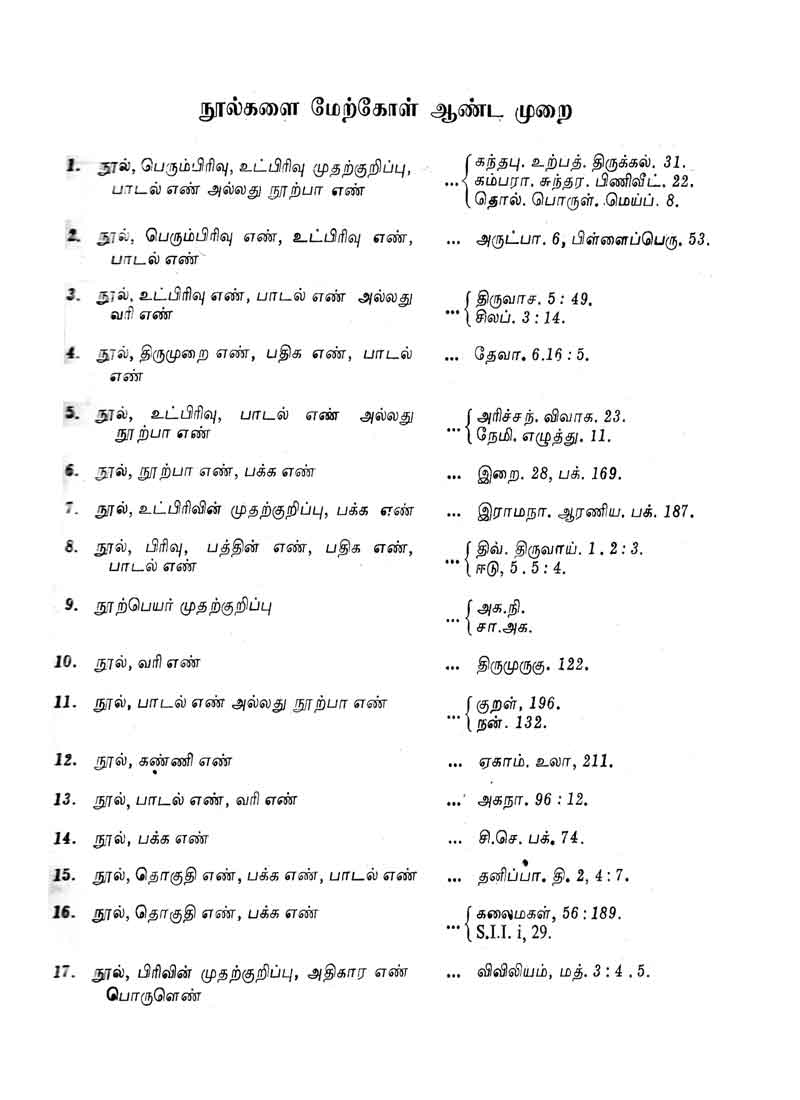 நூல்களை மேற்கோள் ஆண்ட முறை
1. நூல், பெரும்பிரிவு, உட்பிரிவு முதற்குறிப்பு, பாடல் எண் அல்லது நூற்பா எண் ... { கந்தபு. உற்பத். திருக்கல். 31.
கம்பரா. சுந்தர. பிணிவீட். 22.
தொல். பொருள். மெய்ப். 8.
2. நூல், பெரும்பிரிவு எண், உட்பிரிவு எண், ... அருட்பா. 6, பிள்ளைப்பெரு. 53.
பாடல் எண்
3. நூல், உட்பிரிவு எண், பாடல் எண் அல்லது வரி எண் ... { திருவாச. 5 : 49.
சிலப். 3 : 14.
4. நூல், திருமுறை எண், பதிக எண், பாடல் ... தேவா. 6.16 : 5.
எண்
5. நூல், உட்பிரிவு, பாடல் எண் அல்லது நூற்பா எண் ... { அரிச்சந். விவாக. 23.
நேமி. எழுத்து. 11.
6. நூல், நூற்பா எண், பக்க எண் ... இறை. 28, பக். 169.
7. நூல், உட்பிரிவின் முதற்குறிப்பு, பக்க எண் ... இராமநா. ஆரணிய. பக். 187.
8. நூல், பிரிவு, பத்தின் எண், பதிக எண், பாடல் எண் ... { திவ். திருவாய். 1. 2 : 3.
ஈடு, 5. 5 : 4.
9. நூற்பெயர் முதற்குறிப்பு ... { அக.நி.
சா.அக.
10. நூல், வரி எண் ... திருமுருகு. 122.
11. நூல், பாடல் எண் அல்லது நூற்பா எண் ... { குறள், 196.
நன். 132.
12. நூல், கண்ணி எண் ... ஏகாம். உலா, 211.
13. நூல், பாடல் எண், வரி எண் ... அகநா. 96 : 12.
14. நூல், பக்க எண் ... சி.செ. பக். 74.
15. நூல், தொகுதி எண், பக்க எண், பாடல் எண் ... தனிப்பா. தி. 2, 4 : 7.
16. நூல், தொகுதி எண், பக்க எண் ... { கலைமகள், 56 : 189.
S.I.I. i, 29.
17. நூல், பிரிவின் முதற்குறிப்பு, அதிகார எண் ... விவிலியம், மத். 3 : 4 . 5.
பொருளெண்